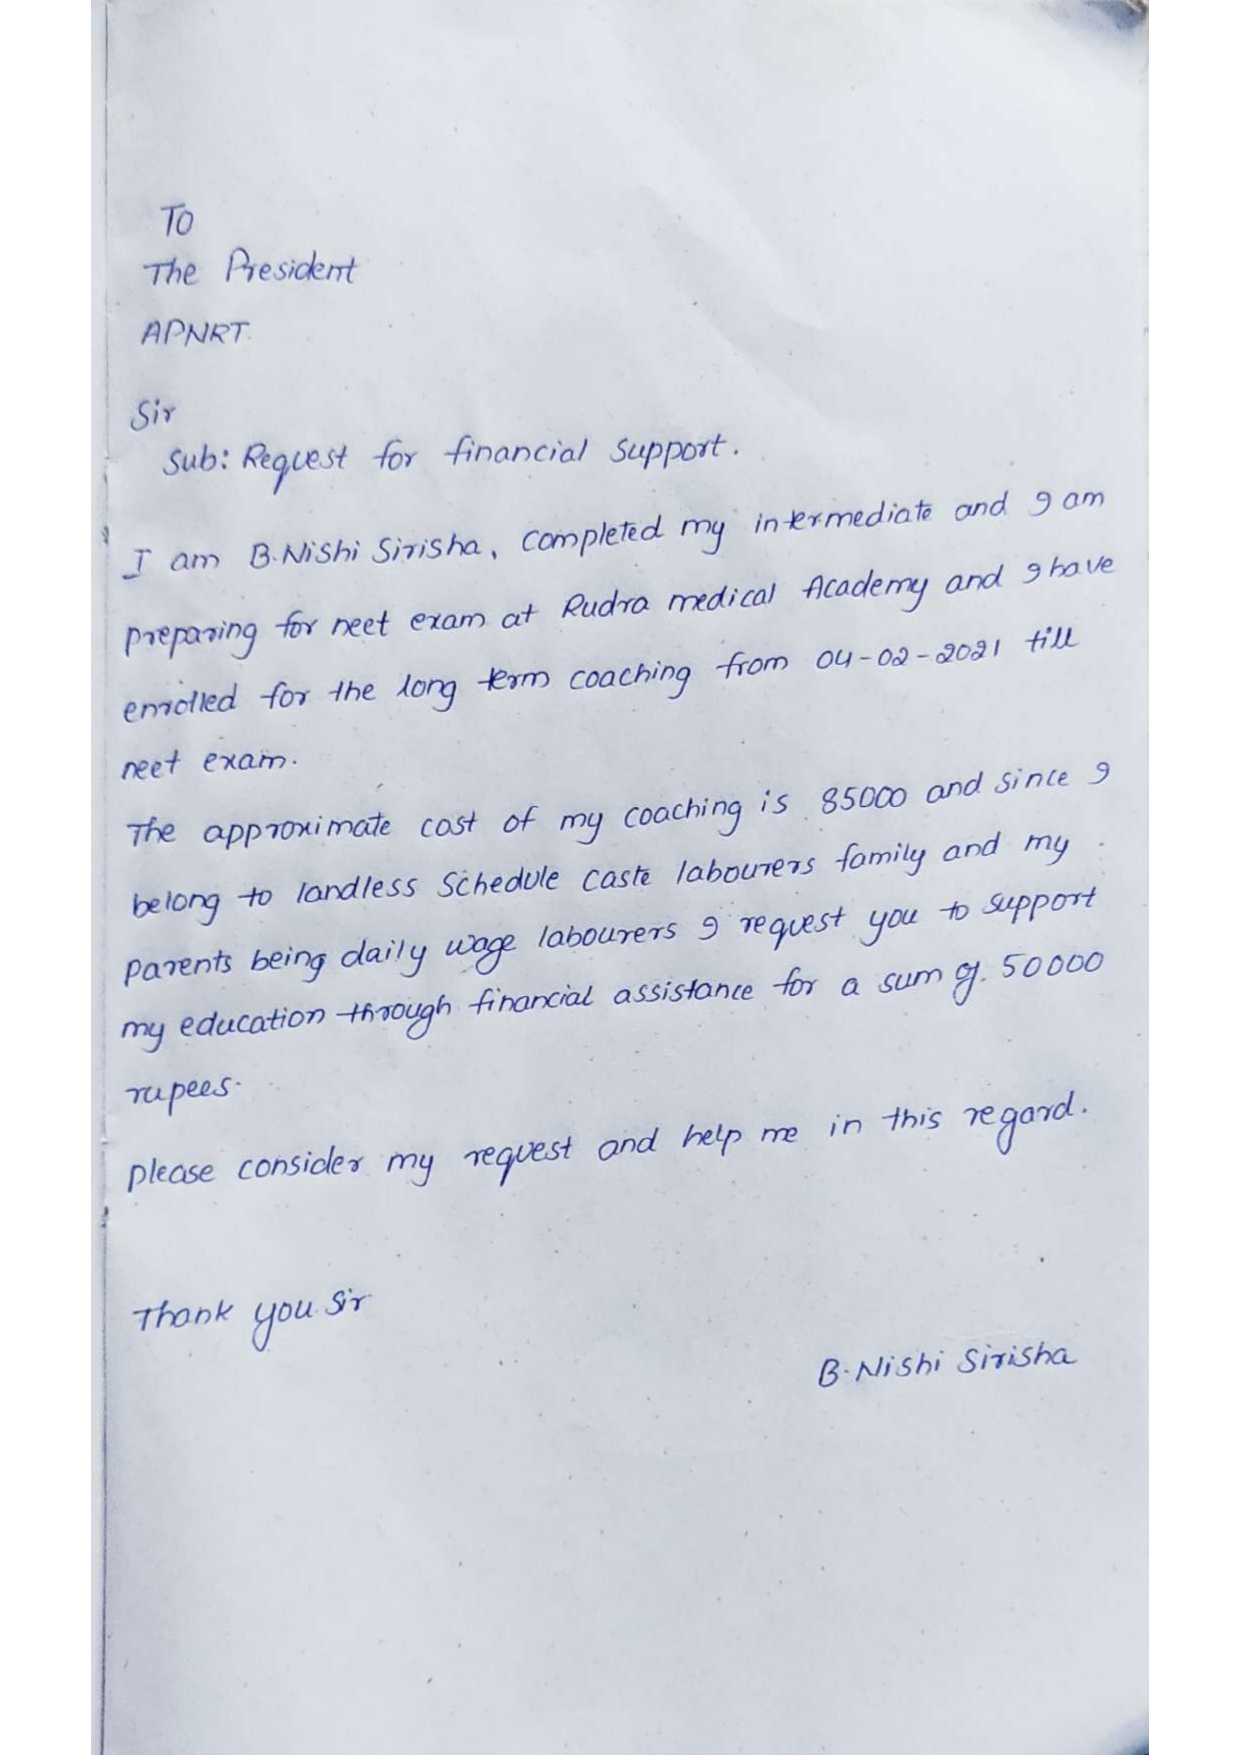 To
The President
APNRT.
Sir
Sub: Request for financial support.
I am B.Nishi Sirisha, completed my intermediate and I am
preparing for neet exam at Rudra medical Academy and I have
enrolled for the long term coaching from 04-02-2021 till
neet exam.
The approximate cost of my coaching is 85000 and since I
belong to landless Schedule caste labourers family and my
parents being daily wage labourers I request you to support
my education through financial assistance for a sum of. 50000
rupees.
please consider my request and help me in this regard.
Thank you Sir
B.Nishi Sirisha